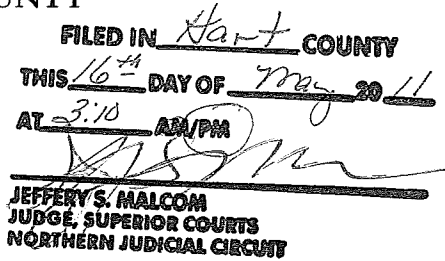 UNTY
FILED IN Hart COUNTY
THIS 16th DAY OF May 20 11
AT 3:10 AM/PM
JEFFERY S. MALCOM
JUDGE, SUPERIOR COURTS
NORTHERN JUDICIAL CIRCUIT